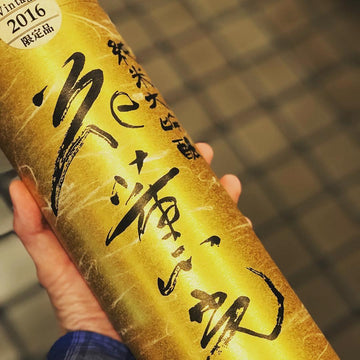 Vintag
2016
限定品
純米大吟醸
花薫光